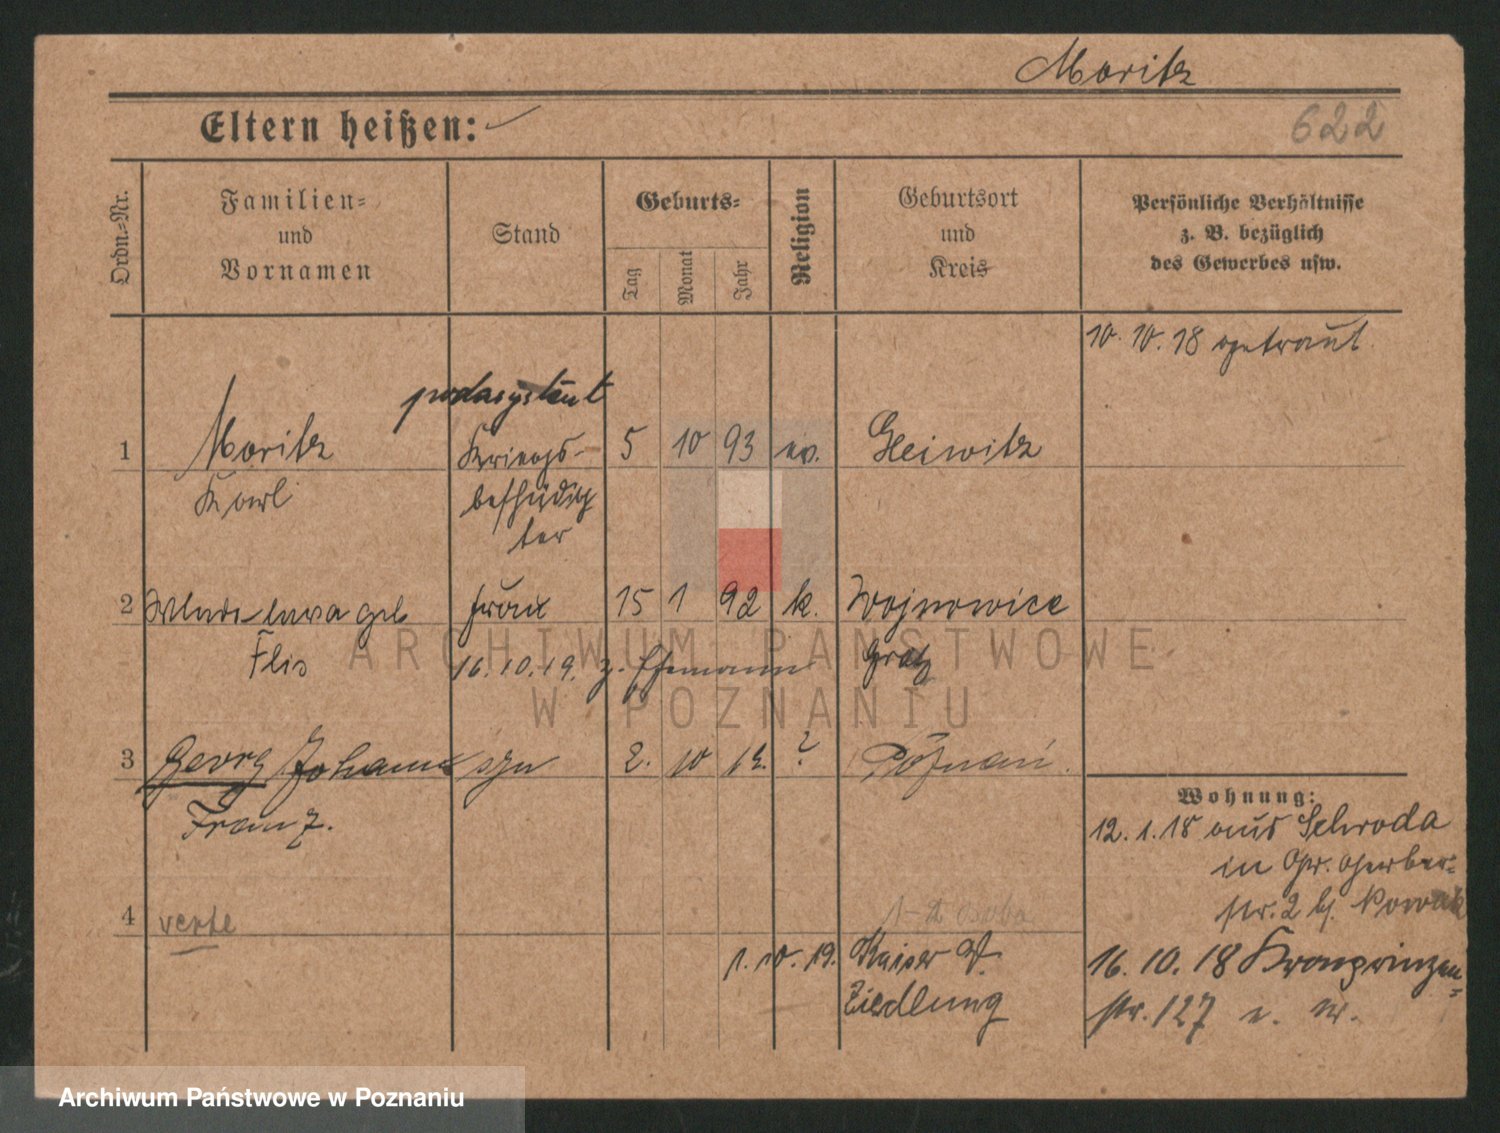 Moritz
622
Eltern heißen:
Ordn.-Nr.
Familien-
und
Vornamen
Stand
Geburts-
Tag
Monat
Jahr
Religion
Geburtsort
und
Kreis
Persönliche Verhältnisse
z. B. bezüglich
des Gewerbes usw.
10. 10. 18 getraut
1 Moritz Kriegs- 5 10 93 ev. Gleiwitz
Karl beschädig
ter
2 geb Frau 15 1 92 k. Wojnowice
Flis 16.10.19. z. Ehemann Grätz
3 Georg Johann syn 2. 10 ? Poznań.
Franz.
Wohnung:
12. 1. 18 aus Schroda
in Gr. Gerber-
str. 2 b. Nowak
4 verte 1-2 osoba
1. 10. 19. Kaiser W.
Siedlung
16. 10. 18 Kronprinzen-
str. 127
ARCHIWUM PAŃSTWOWE
W POZNANIU
Archiwum Państwowe w Poznaniu